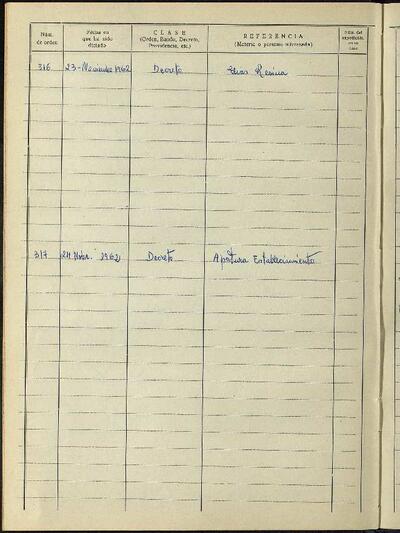 Núm. de orden
Fecha en que ha sido dictado
CLASE
(Orden, Bando, Decreto, Providencia, etc.)
REFERENCIA
(Materia o persona interesada)
Núm. del expediente
316 23-Noviembre 1962 Decreto Elías
317 24 Nbre. 1962 Decreto Apertura Establecimiento